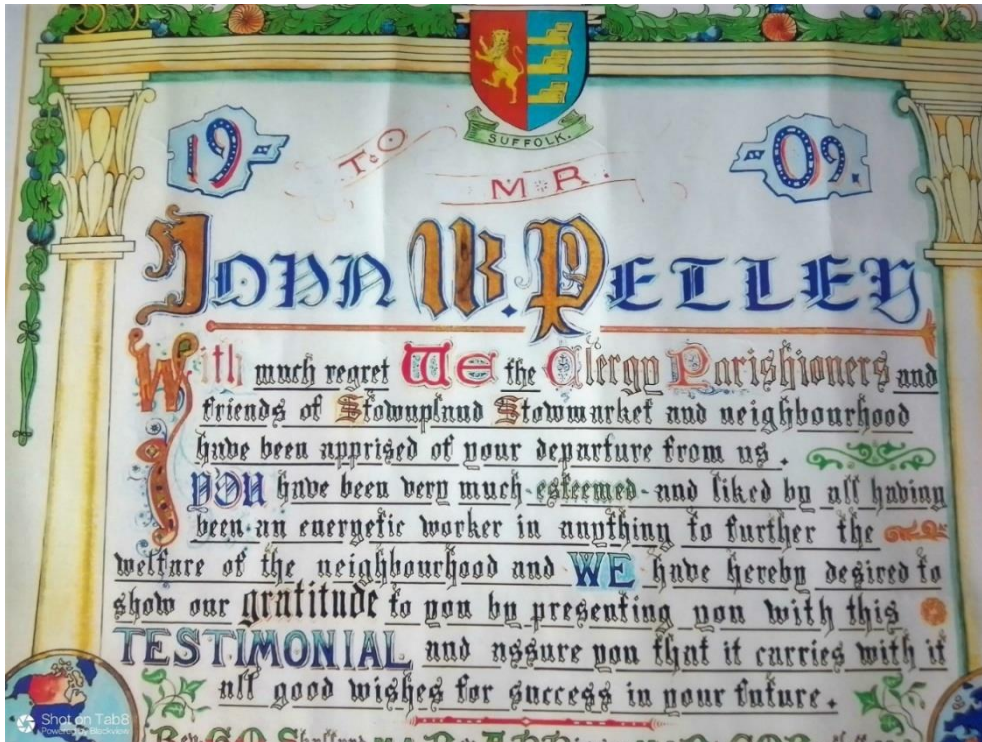 SUFFOLK.
19 09.
TO
MR.
JOHN W. PETLEY
With much regret WE the Clergy Parishioners and
friends of Stowupland Stowmarket and neighbourhood
have been apprised of your departure from us.
YOU have been very much esteemed and liked by all having
been an energetic worker in anything to further the
welfare of the neighbourhood and WE have hereby desired to
show our gratitude to you by presenting you with this
TESTIMONIAL and assure you that it carries with it
all good wishes for success in your future.
Shot on Tab8
Powered by Blackview